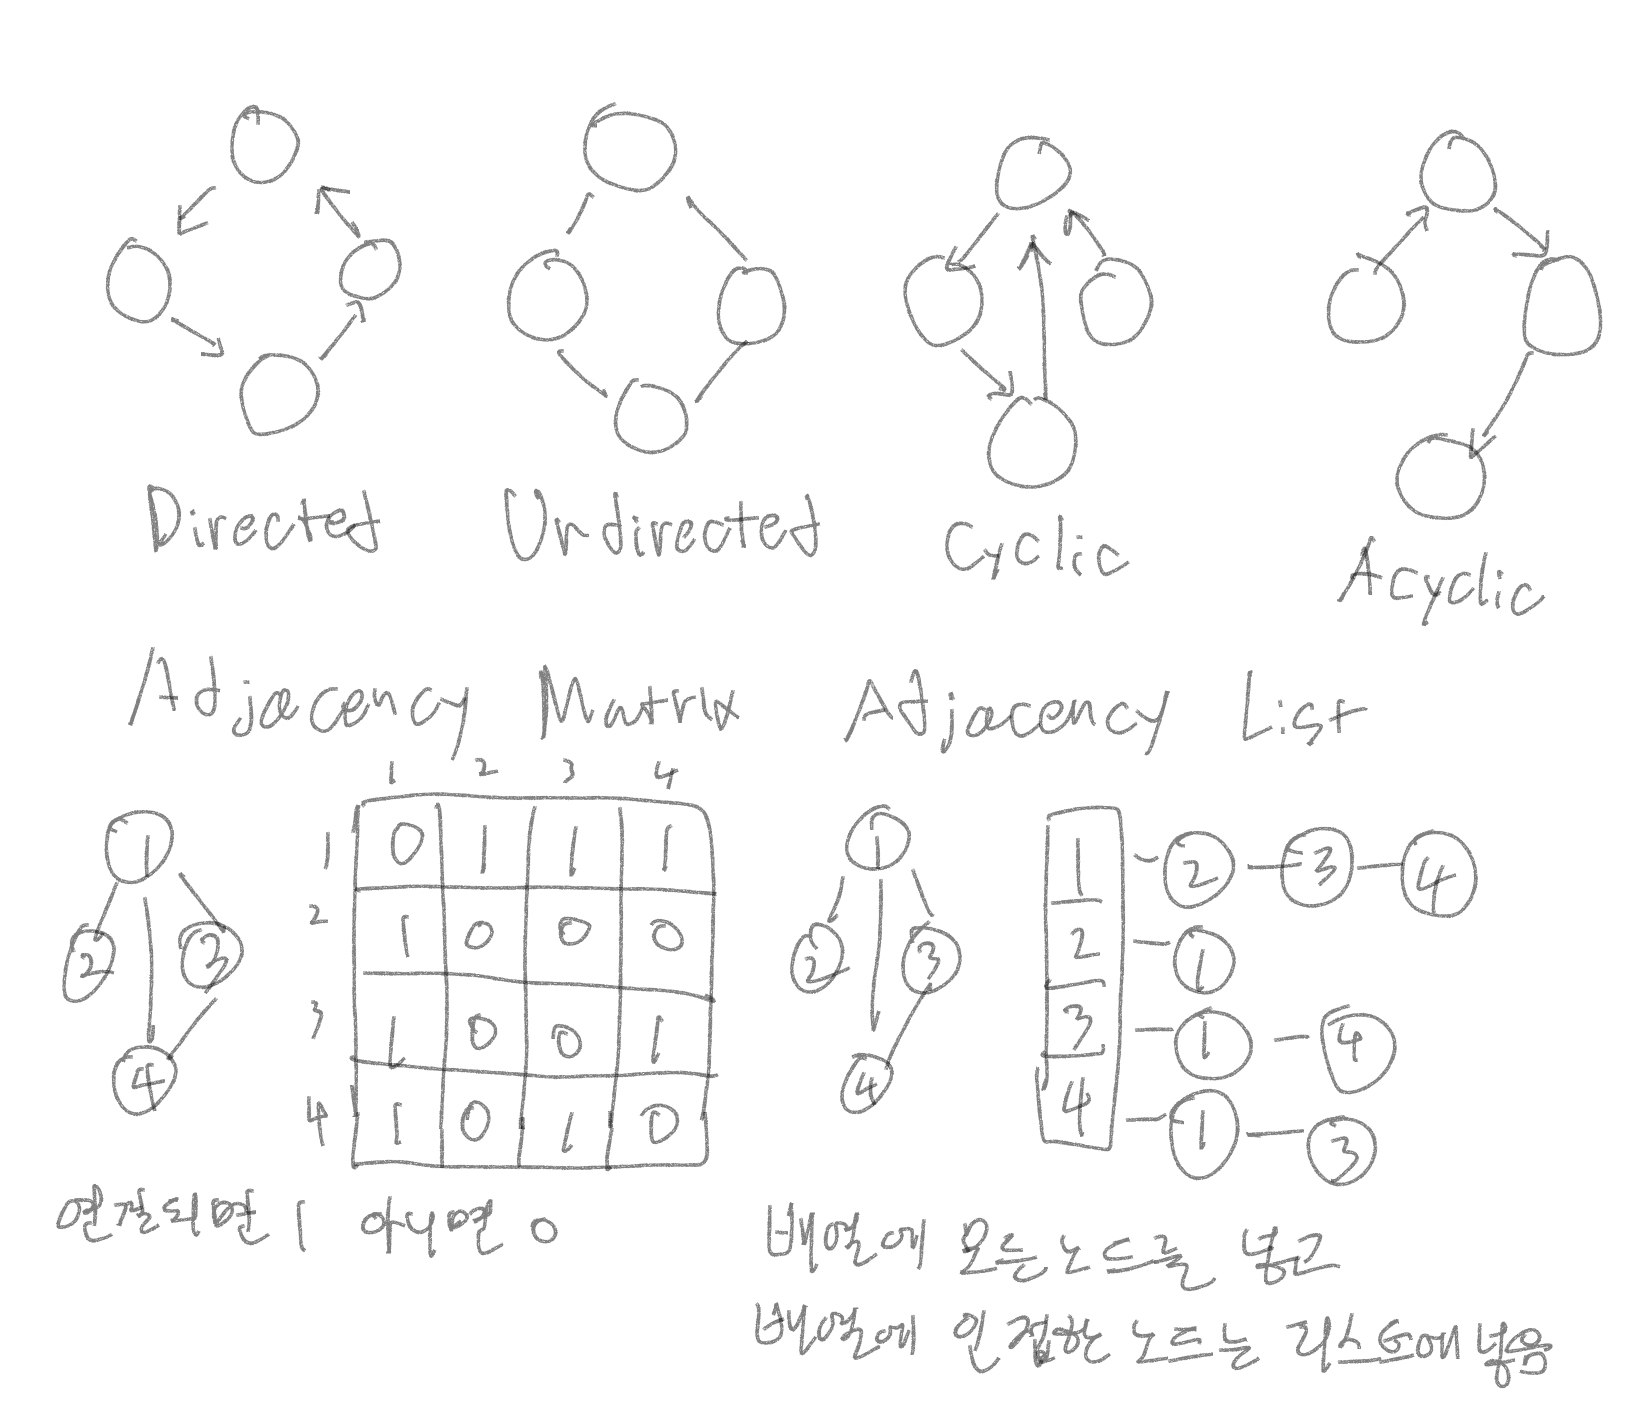 Directed Undirected Cyclic Acyclic
Adjacency Matrix
1 2 3 4
1 0 1 1 1
2 1 0 0 0
3 1 0 0 1
4 1 0 1 0
1
2 3
4
연결되면 1 아니면 0
Adjacency List
1
2 3
4
1 2 3 4
2 1
3 1 4
4 1 3
배열에 모든노드를 넣고
배열에 인접한 노드는 리스트에 넣음